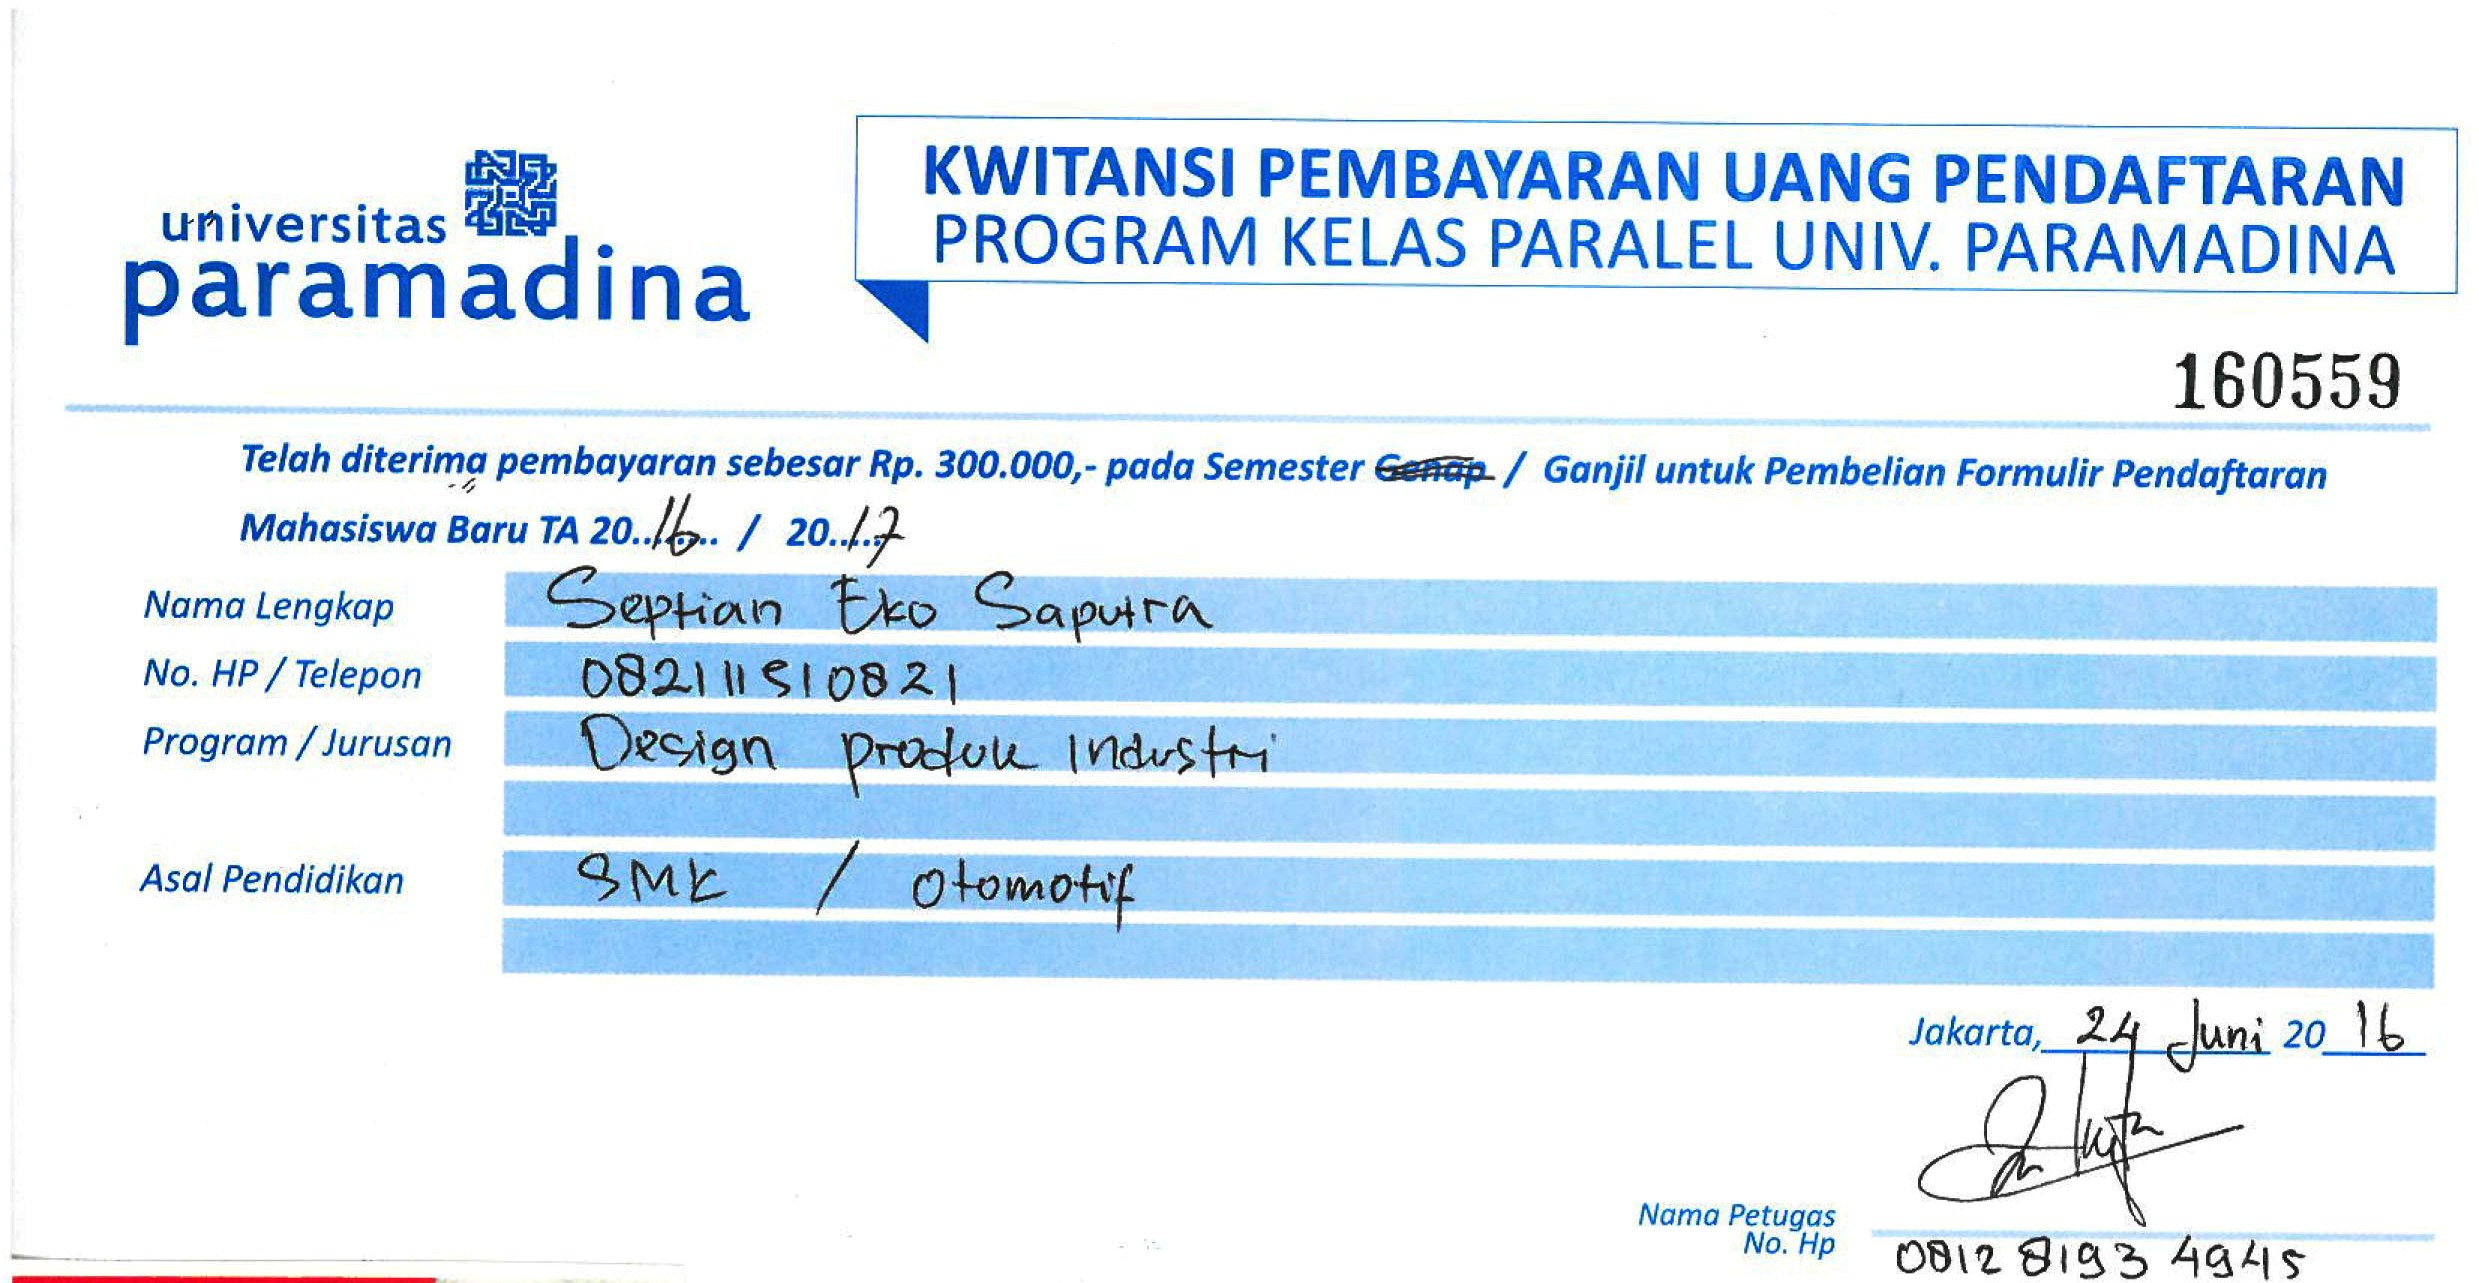 universitas
paramadina
KWITANSI PEMBAYARAN UANG PENDAFTARAN
PROGRAM KELAS PARALEL UNIV. PARAMADINA
160559
Telah diterima pembayaran sebesar Rp. 300.000,- pada Semester Genap / Ganjil untuk Pembelian Formulir Pendaftaran
Mahasiswa Baru TA 20..16... / 20..17
Nama Lengkap Septian Eko Saputra
No. HP / Telepon 082111510821
Program / Jurusan Design produk Industri
Asal Pendidikan SMK / Otomotif
Jakarta, 24 Juni 20 16
Nama Petugas
No. Hp 0812 8193 4945